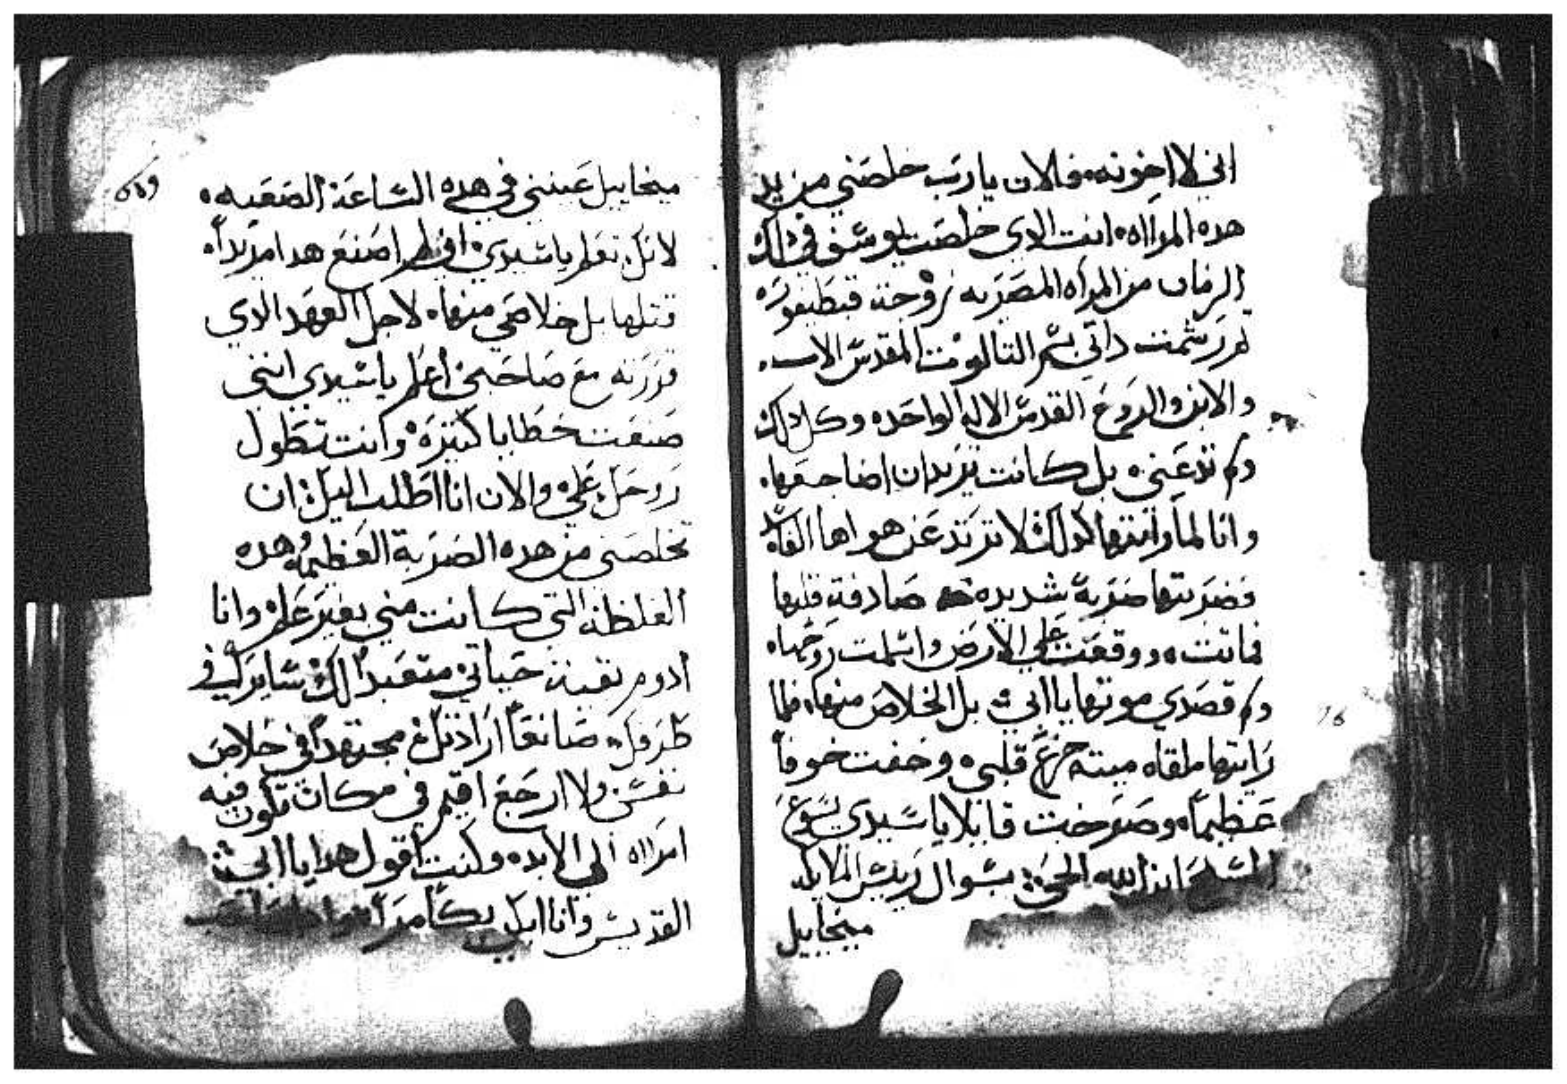 اني لا اخونه فالان يارب خلصني من يد
هده المرااه انت الدي خلصت يوسف في داك
الزمان من المراه المصريه زوجت قبطيفوره
تم رشمت داتي بسم التالوت المقدس الاب
والابن والروح القدس الاله الواحده وكل دلك
ولم تدعني بل كانت تريد ان اضاجعها
وانا لما رايتها كدلك لا ترتد عن هواها
فضربتها ضربة شديده صادفة قلبها
فماتت ووقعت علي الارض واسلمت روحها
ولم قصدي موتها ياابي بل الخلاص منها فلما
رايتها ملقاه ميته جزع قلبي وخفت خوفاً
عظيماً وصرخت قايلا ياسيدي يسوع
المسيح ابن الله الحي بسوال رييس الملايكه
ميخاييل
ميخاييل عينني في هده الساعة الصعبه
لانك تعلم ياسيدي اني لم اصنع هدا مريداً
قتلها بل خلاصي منها لاجل العهد الدي
قررته مع صاحبي اعلم ياسيدي انني
صنعت خطايا كتيرة وانت تطول
روحك علي والان انا اطلب اليك ان
تخلصني من هده الضربة العظيمه هده
الغلطة التي كانت مني بغير علم وانا
ادوم بقية حياتي متعبداً لك ساير في
طرقك صانعاً ارادتك مجتهداً في خلاص
نفسي ولا ارجع اقيم في مكان تكون فيه
امرااه الي الابده وكنت اقول هدا ياابي
القديس وانا ابكي بكاً مراً